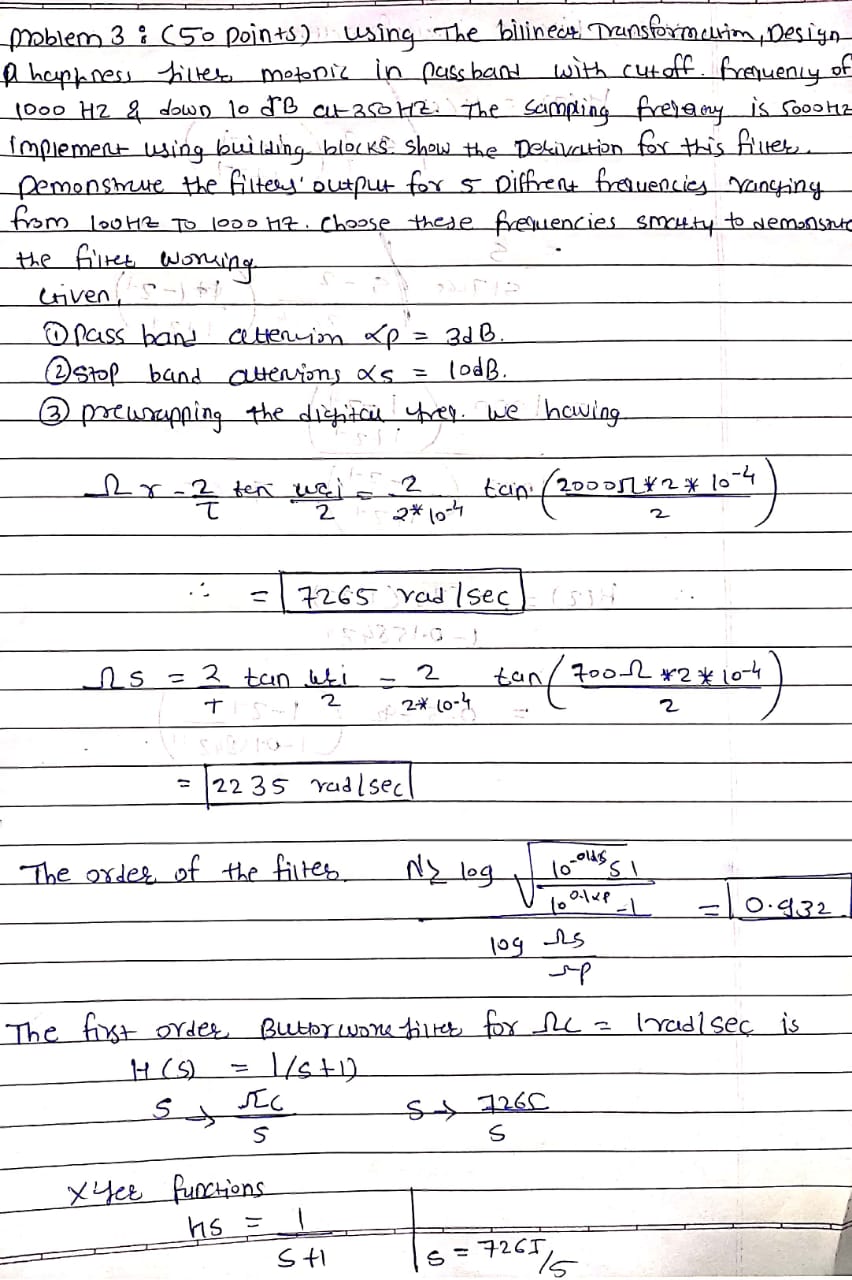 problem 3 : (50 points) using The bilinear Transformation, Design
A highpass filter motonic in passband with cutoff. frequency of
1000 HZ & down 10 dB at 350 HZ. The sampling freqency is 5000HZ
implement using building blocks. show the Derivation for this filter.
Demonstrate the filters' output for 5 Diffrent frequencies ranging
from 100HZ TO 1000 HZ. Choose these frequencies smartly to demonsrate
the filter working
Given,
① pass band attenion αp = 3dB.
② stop band attenions αs = 10dB.
③ prewrapping the digital freq. we having
Ωr - 2/T tan ωi/2 = 2/2*10-4 tan. (2000Ω*2*10-4/2)
∴ = 7265 rad/sec
Ωs = 2/T tan ωi/2 = 2/2*10-4 tan (700Ω*2*10-4/2)
= 2235 rad/sec
The order of the filter N≥ log √10-0.1αs s1/10 0.1αp -1 = 0.932
log Ωs/Ωp
The first order Butorwone filter for ΩC = 1rad/sec is
H(S) = 1/S+1)
S → ΩC/S S → 7265/S
Xfer functions
hs = 1/S+1 | s = 7265/s